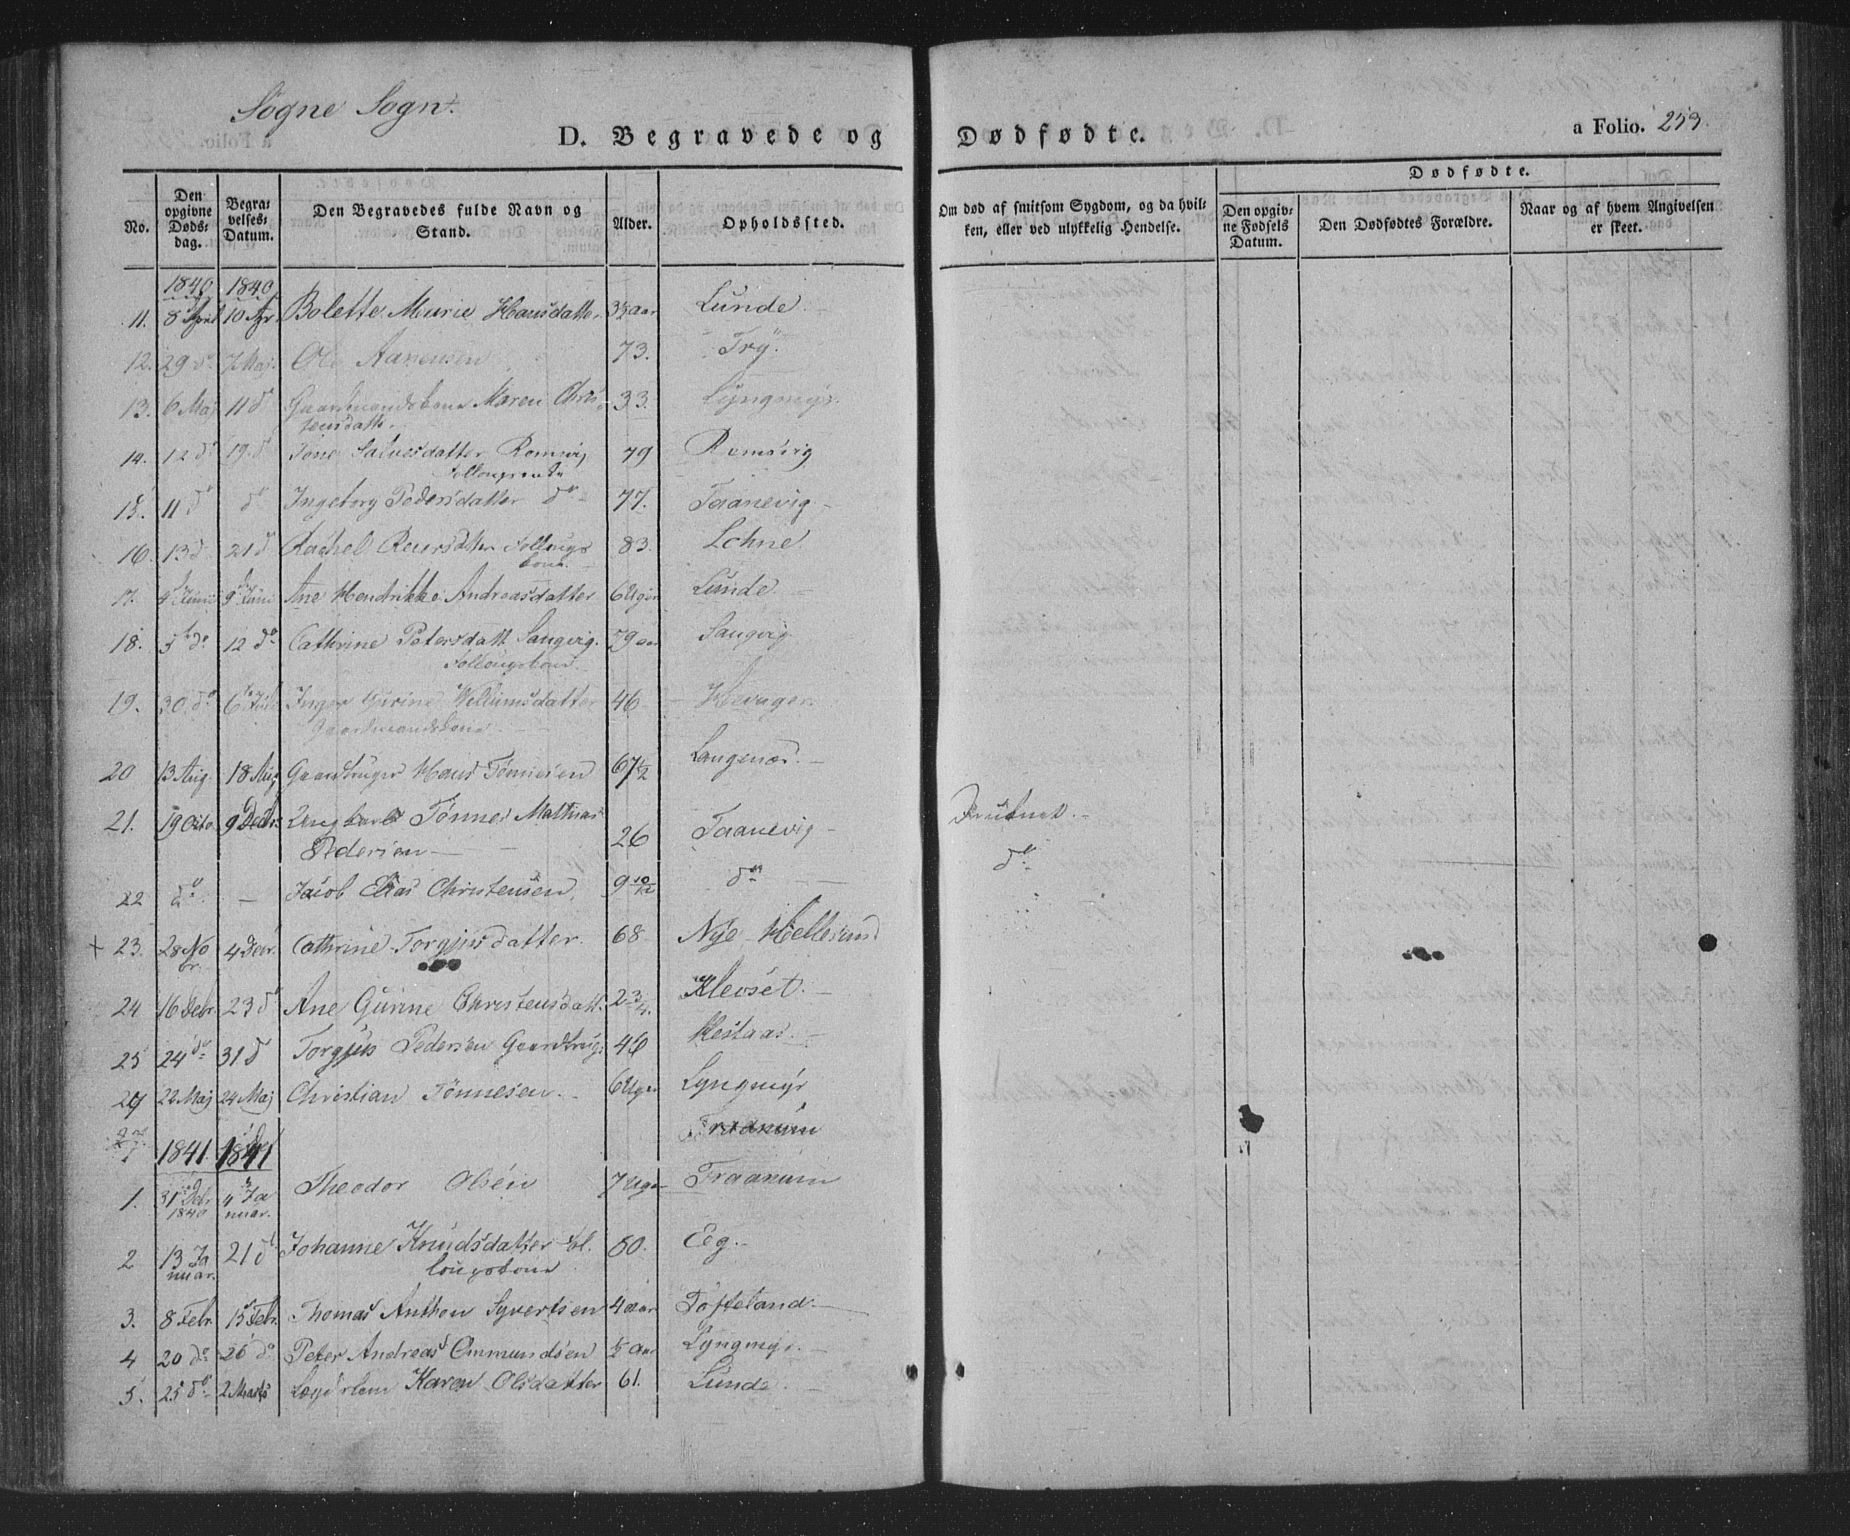 Søgne Sogn.
D. Begravede og Dødfødte.
a Folio. 253.
No.
Den opgivne Døds-dag.
Begra-velses-Datum.
Den Begravedes fulde Navn og Stand.
Alder.
Opholdssted.
Om død af smitsom Sygdom, og da hvil-ken, eller ved ulykkelig Hendelse.
Dødfødte.
Den opgiv-ne Fødsels Datum.
Den Dødfødtes Forældre.
Naar og af hvem Angivelsen er skeet.
1840 1840
11. 8 April 10 Apr. Bolette Marie Hansdatter 3½ Aar Lunde
12. 29 do 7 Maj. Ole Aanensen 73. Try.
13. 6 Maj 11 d Gaardmandskone Maren Chris-33. Lyngmyr.
tensdatter
14. 12 do 19. d Tone Salvesdatter Romsvig 79 Romsvig
15. 11 d do Ingeborg Pedersdatter do 77. Taanevig
16. 13 d. 21 d Rachel 83. Lohne
kone
17. 4 Juni 9 Juni Ane Hendrikke Andreasdatter 6 Uger Lunde
18. 5 do 12 do Cathrine Petersdatt. Langvig. 79 aar Langvig
Follougskone
19. 30. do 6 Juli Inger Gurine Willumsdatter 46
Gaardmandskone
20 13 Aug. 18 Aug Gaardbruger Hans Tønnesen 67½ Langenæs.
21. 19 Octo. 9 Decbr. Ungkarl Tønnes Mathias 26 Taanevig Druknet.
Pedersen
22 do Jacob Elias Christensen 9 10/12 do do
+ 23. 28 No 4 Decbr. Cathrine Torgjusdatter. 68 Nye Hellesund
br.
24 16 Decbr. 23 d Ane Gurine Christensdatt. 2 3/4. Klevset.
25 24 do 31 d Torgjus Pedersen Gaardbrug. 46 Hestaas.
22 Maj 24 Maj Christian Tønnesen. 6 Uger Lyngmyr
1841. 1841
1. 31 Decbr. 4 Ja Theodor Olsen 7 Uger Traanum
1840 nuar.
2 13 Ja 21 d Johanne Knudsdatter Fol. 60. Eeg.
nuar. lougskone
3. 8 Febr. 15 Febr. Thomas Anthon Syvertsen 4 aar Tofteland
4 20 do 26 do Peter Andreas Ommundsen ½ aar Lyngmyr.
5. 25 do 2 Marts Karen Olsdatter 61. Lunde.